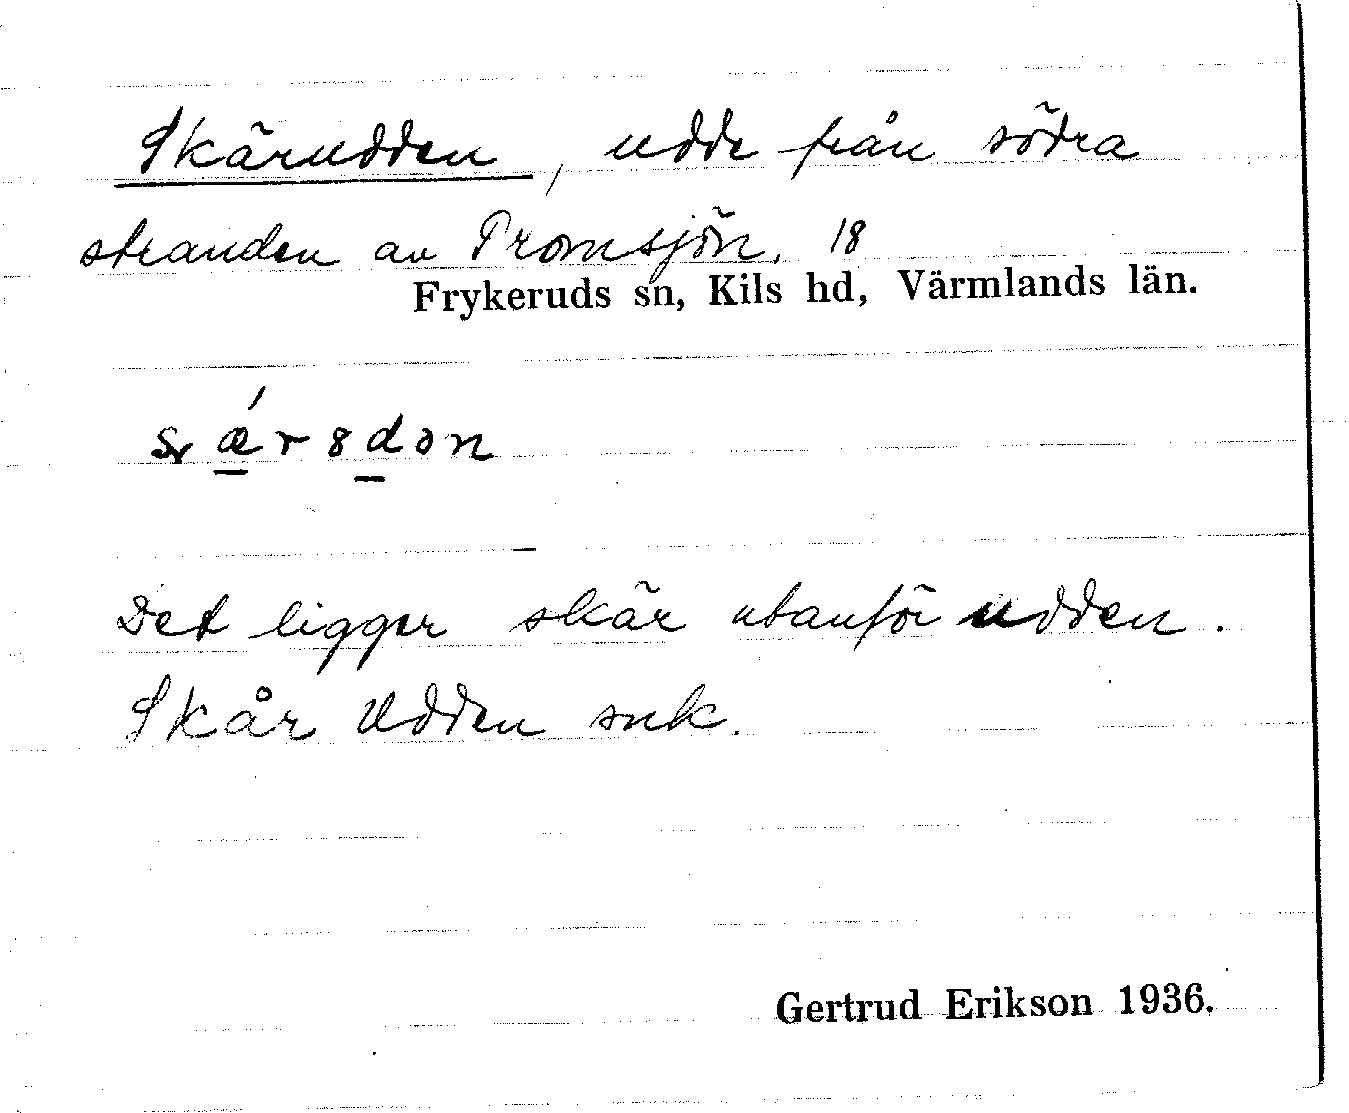 Skärudden, udde från södra
stranden av Tromsjön. 18
Frykeruds sn, Kils hd, Värmlands län.
Det ligger skär utanför udden.
Skår Udden snk.
Gertrud Erikson 1936.